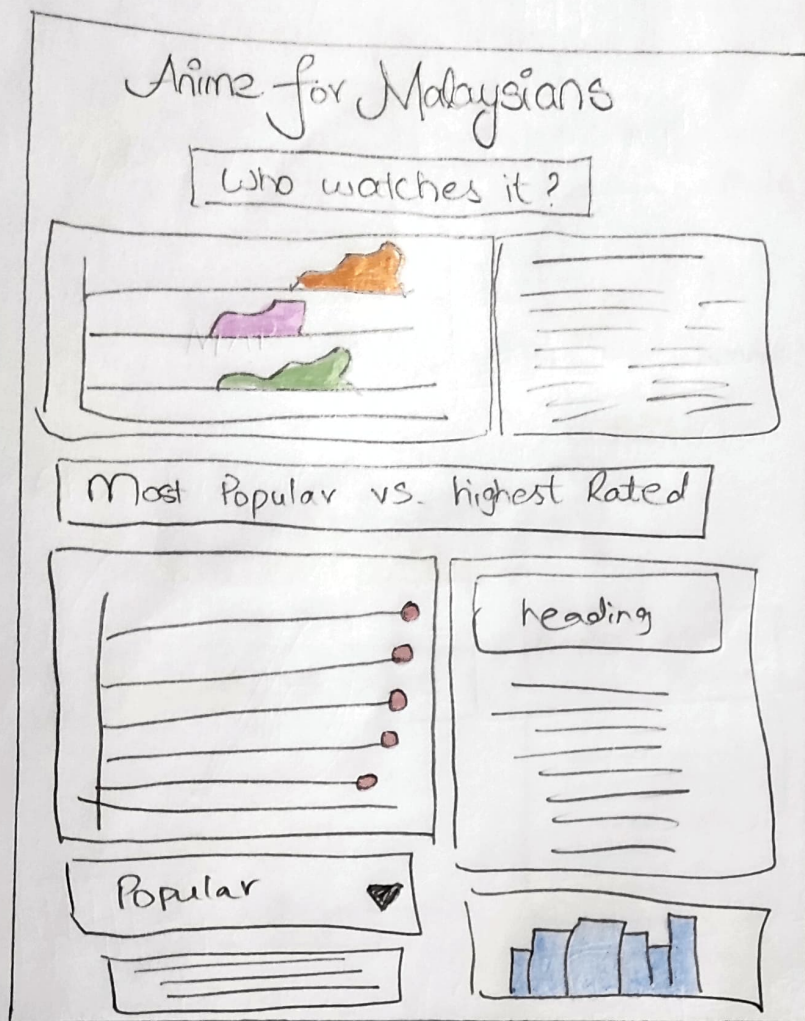 Anime for Malaysians
Who watches it?
Most Popular vs. highest Rated
heading
Popular